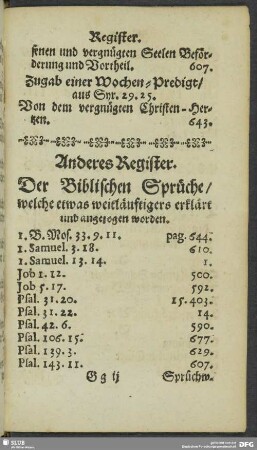 Register.
ſenen und vergnügten Seelen Beför-
derung und Vortheil. 607.
Zugab einer Wochen-Predigt/
aus Syr. 29. 25.
Von dem vergnügten Chriſten-Her-
tzen. 643.
Anderes Regiſter.
Der Bibliſchen Sprüche/
welche etwas weitläufftigers erklärt
und angezogen worden.
1. B. Moſ. 33. 9. 11. pag. 644.
1. Samuel. 3. 18. 610.
1. Samuel. 13. 14. 1.
Job 1. 12. 500.
Job 5. 17. 592.
Pſal. 31. 20. 15. 403.
Pſal. 31. 22. 14.
Pſal. 42. 6. 590.
Pſal. 106. 15. 677.
Pſal. 139. 3. 629.
Pſal. 143. 11. 607.
G g ij Sprüchw.
SLUB
DFG